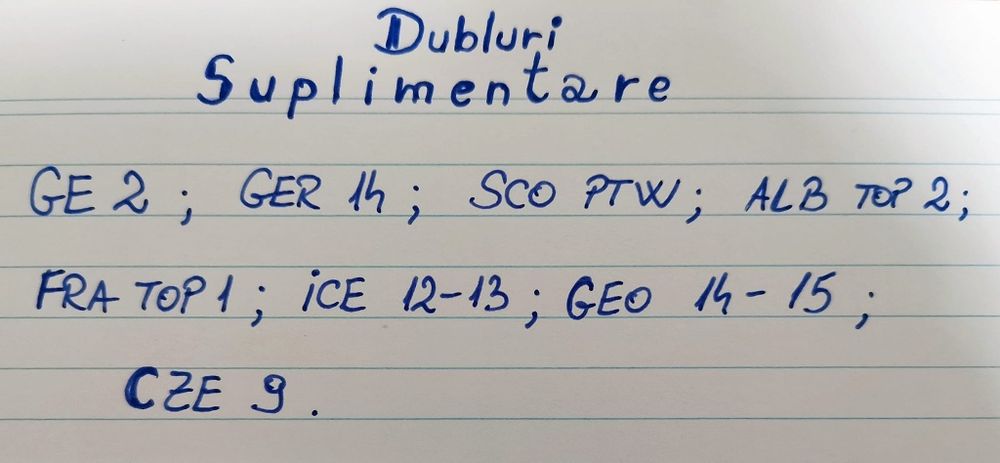 Dubluri
Suplimentare
GE 2; GER 14; SCO PTW; ALB TOP 2;
FRA TOP 1; ICE 12-13; GEO 14-15;
CZE 9.